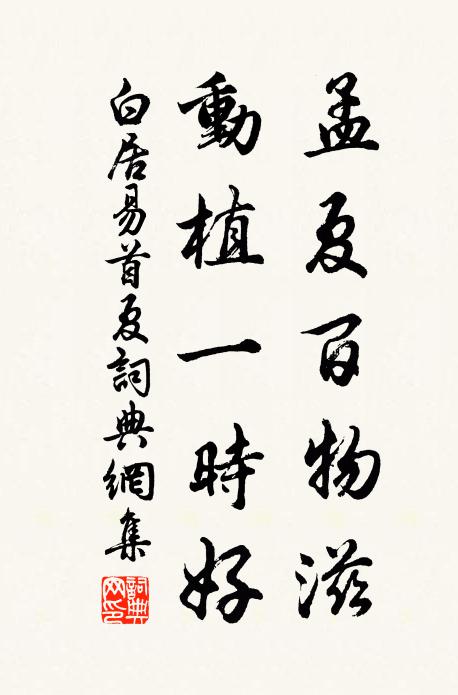 孟夏百物滋
動植一時好
白居易首夏詞典網集
詞典網印